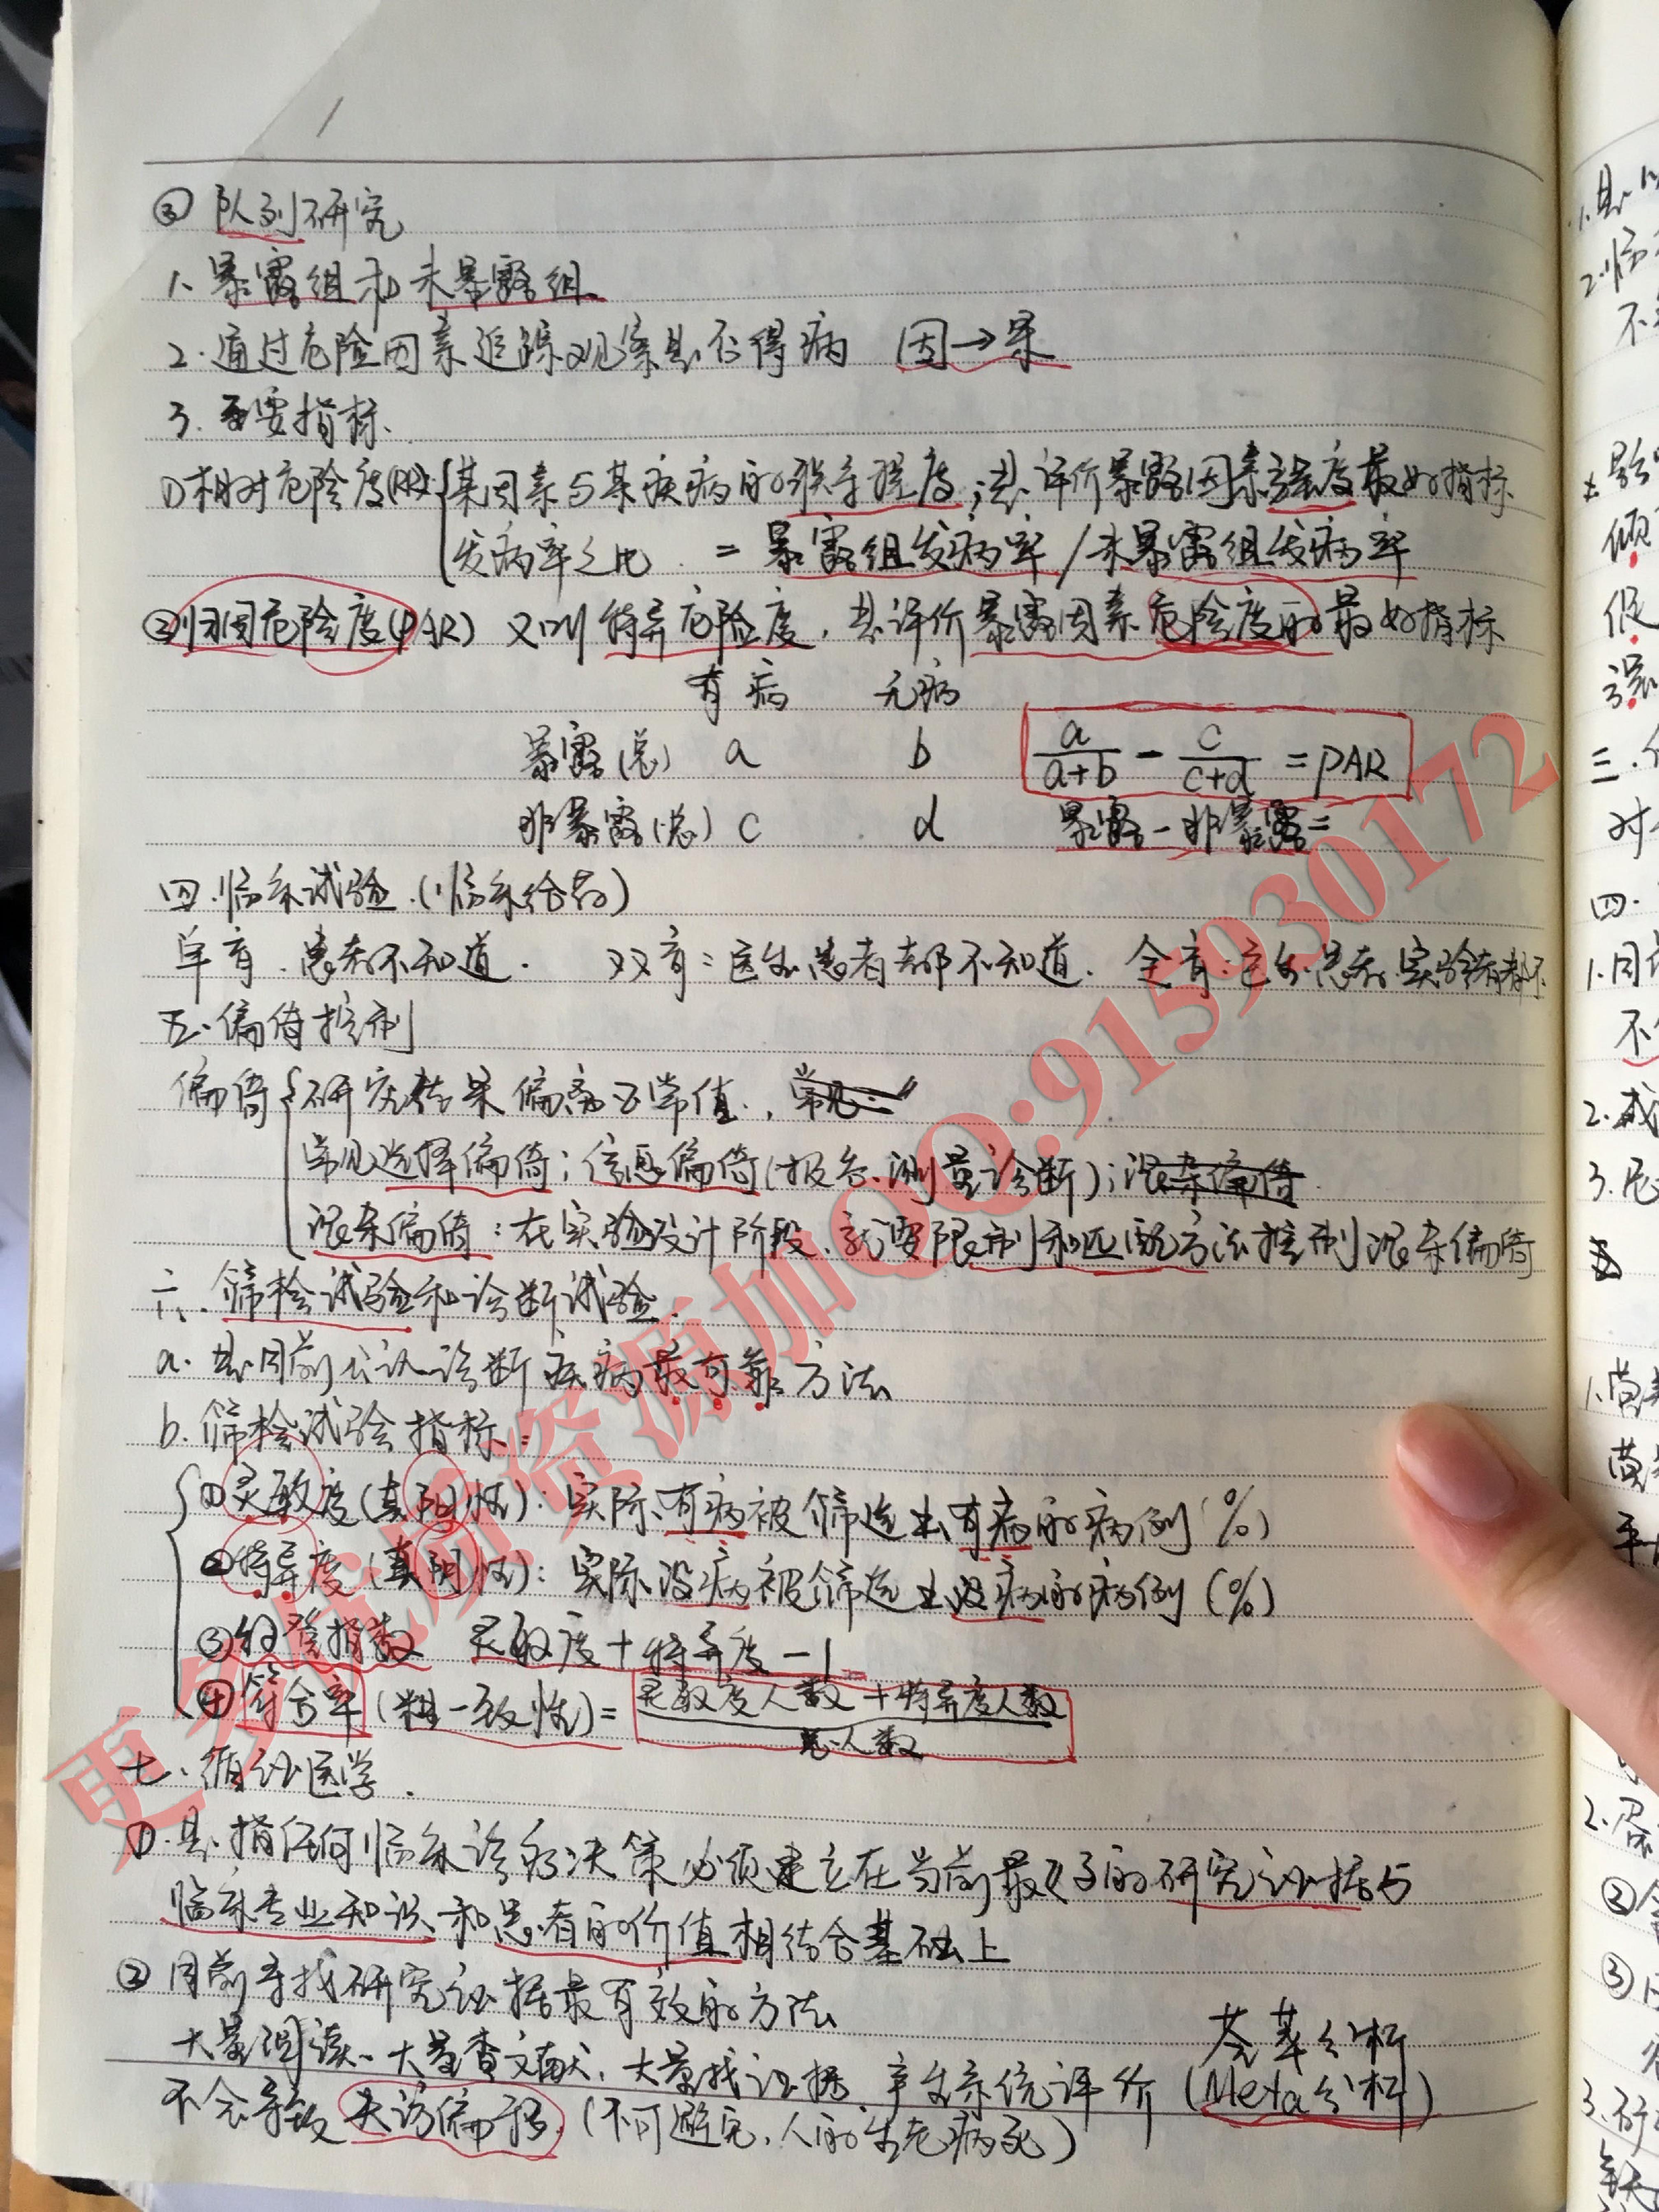 ③ 队列研究
1、暴露组和未暴露组
2.通过危险因素追踪观察是否得病 因→果
3.主要指标.
①相对危险度(RR) 某因素与某疾病的联系程度;是评价暴露因素强度最好指标
发病率之比 = 暴露组发病率/未暴露组发病率
②归因危险度(PAR) 又叫特异危险度,是评价暴露因素危险度的最好指标
有病 无病
暴露(总) a b a/a+b - c/c+d = PAR
非暴露(总) c d 暴露-非暴露=
四.临床试验.(临床给药)
单盲.患者不知道. 双盲:医生患者都不知道. 全盲:医生患者实验者都不
五.偏倚控制
偏倚 研究结果偏离正常值.,
常见选择偏倚;信息偏倚(报告.测量诊断);混杂偏倚
混杂偏倚:在实验设计阶段.就要限制和匹配方法控制混杂偏倚
六.筛检试验和诊断试验.
a.是目前公认诊断疾病最可靠方法
b.筛检试验指标:
①灵敏度(真阳性):实际有病被筛选出有病的病例(%)
②特异度(真阴性):实际没病被筛选出没病的病例(%)
③约登指数 灵敏度+特异度-1
④符合率(粗一致性)= 灵敏度人数+特异度人数
总人数
七.循证医学.
①.是指任何临床诊疗决策必须建立在当前最好的研究证据与
临床专业知识和患者的价值相结合基础上
②目前寻找研究证据最有效的方法
荟萃分析
大量阅读、大量查文献,大量找证据.产生系统评价(Meta分析)
不会导致失访偏倚.(不可避免,人的生老病死)
更多优质资源加QQ:915930172